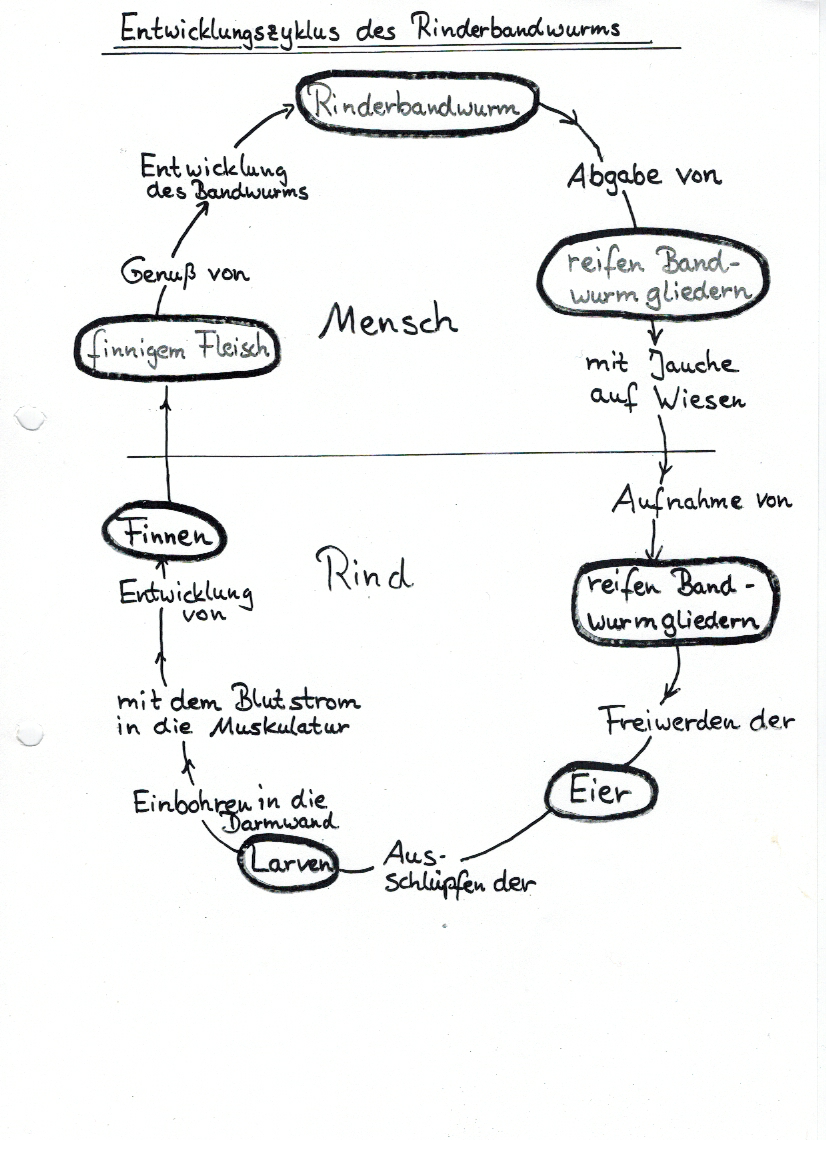 Entwicklungszyklus des Rinderbandwurms
Rinderbandwurm
Abgabe von
reifen Band-
wurmgliedern
mit Jauche
auf Wiesen
Aufnahme von
reifen Band-
wurmgliedern
Freiwerden der
Eier
Aus-
schlüpfen der
Larven
Einbohren in die
Darmwand
mit dem Blutstrom
in die Muskulatur
Entwicklung
von
Finnen
finnigem Fleisch
Genuß von
Entwicklung
des Bandwurms
Mensch
Rind